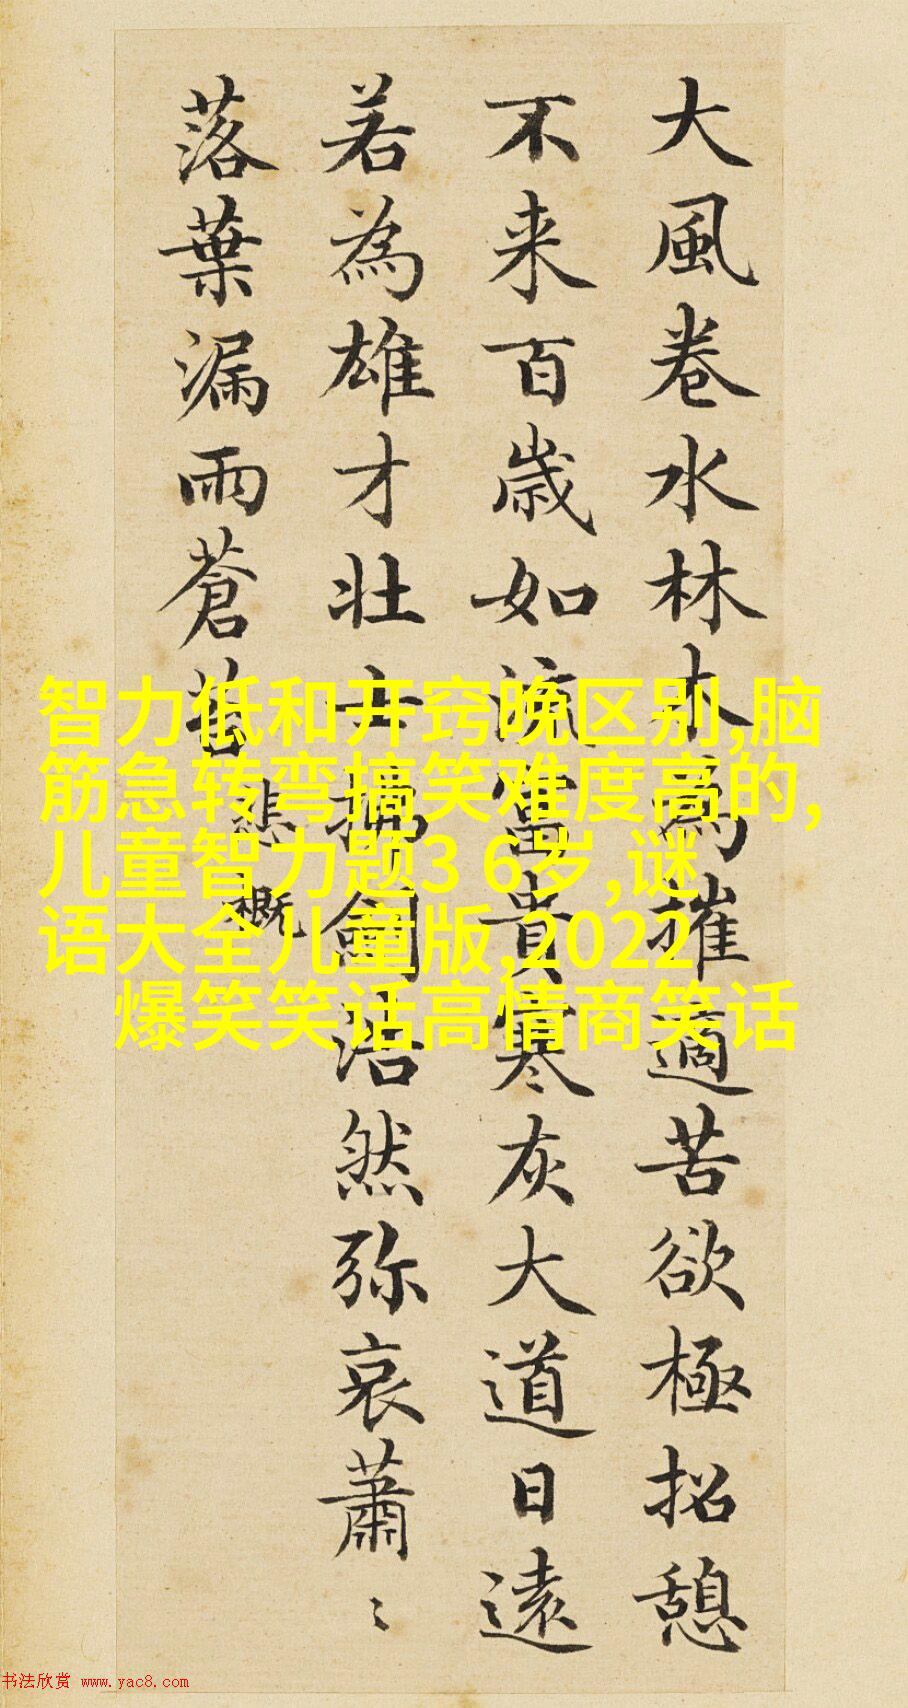 大風卷水林木為摧適苦欲極招憩
不来百歳如流富貴寒灰大道日遠
若為雄才壯士拂劍浩然弥哀蕭〻
落葉漏雨蒼苔
悲慨
智力低和开窍晚区别,脑
筋急转弯搞笑难度高的,
儿童智力题3 6岁,谜
语大全儿童版,2022
爆笑笑话高情商笑话
书法欣赏 www.yac8.com